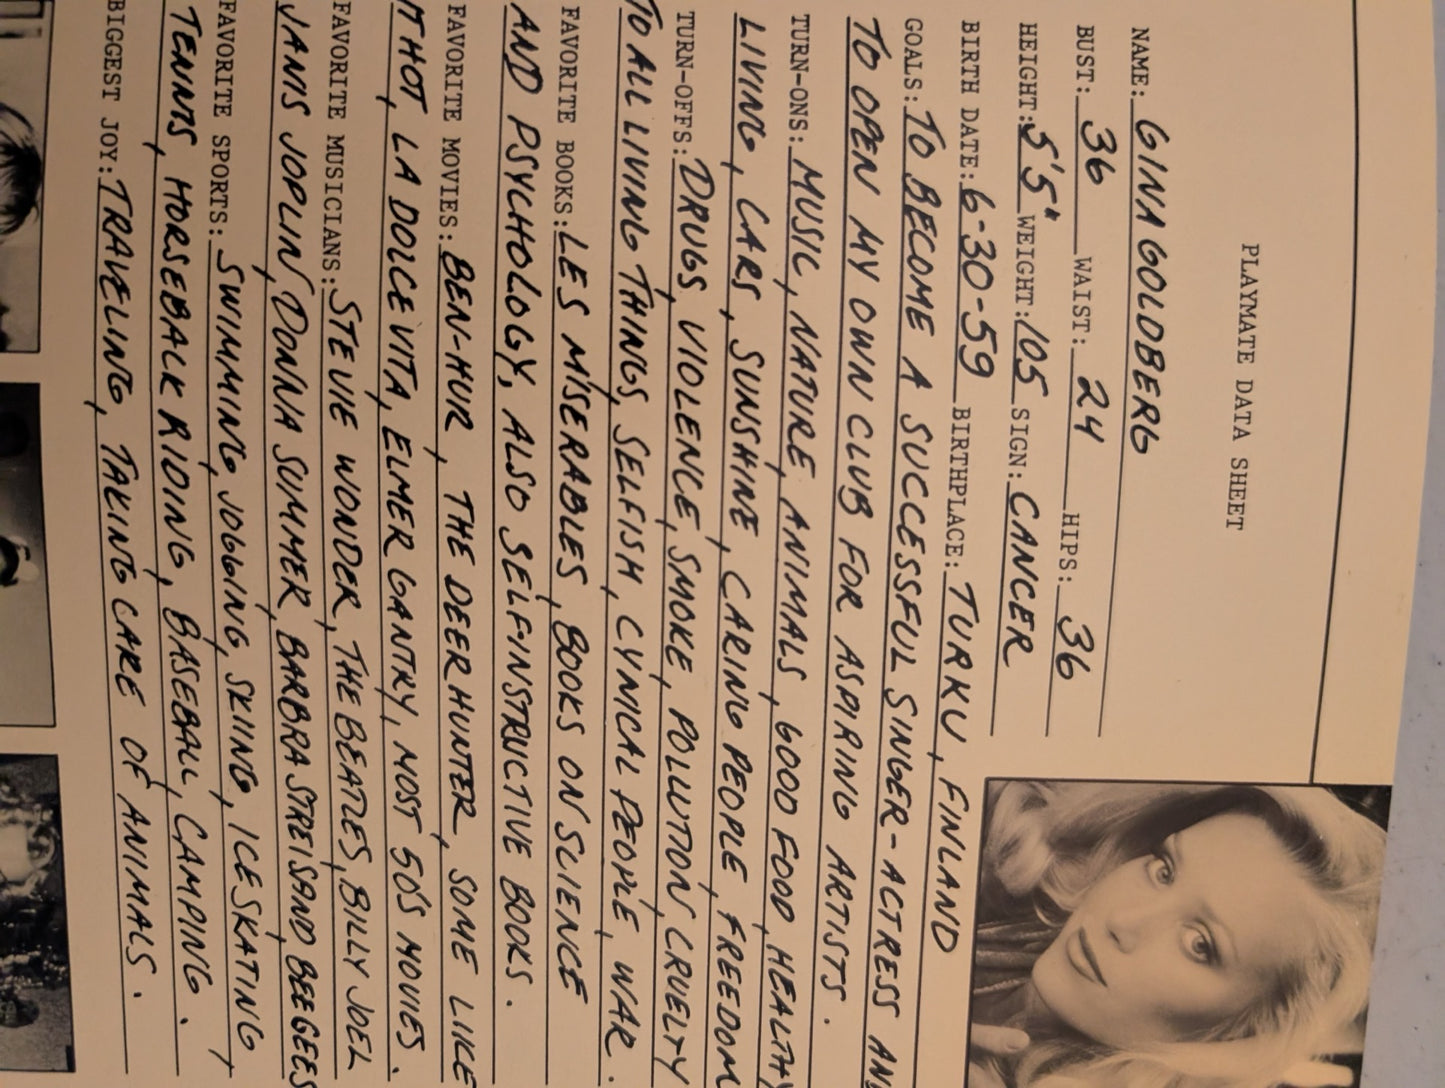 PLAYMATE DATA SHEET
NAME: GINA GOLDBERG
BUST: 36 WAIST: 24 HIPS: 36
HEIGHT: 5'5" WEIGHT: 105 SIGN: CANCER
BIRTH DATE: 6-30-59 BIRTHPLACE: TURKU, FINLAND
GOALS: TO BECOME A SUCCESSFUL SINGER-ACTRESS AND
TO OPEN MY OWN CLUB FOR ASPIRING ARTISTS.
TURN-ONS: MUSIC, NATURE, ANIMALS, GOOD FOOD, HEALTHY
LIVING, CARS, SUNSHINE, CARING PEOPLE, FREEDOM
TURN-OFFS: DRUGS, VIOLENCE, SMOKE, POLUTION, CRUELTY
TO ALL LIVING THINGS, SELFISH, CYNICAL PEOPLE, WAR.
FAVORITE BOOKS: LES MISERABLES, BOOKS ON SCIENCE
AND PSYCHOLOGY, ALSO SELFINSTRUCTIVE BOOKS.
FAVORITE MOVIES: BEN-HUR, THE DEER HUNTER, SOME LIKE
IT HOT, LA DOLCE VITA, ELMER GANTRY, MOST 50'S MOVIES.
FAVORITE MUSICIANS: STEVIE WONDER, THE BEATLES, BILLY JOEL
JANIS JOPLIN, DONNA SUMMER, BARBRA STREISAND, BEE GEES
FAVORITE SPORTS: SWIMMING, JOGGING, SKIING, ICESKATING,
TENNIS, HORSEBACK RIDING, BASEBALL, CAMPING.
BIGGEST JOY: TRAVELING, TAKING CARE OF ANIMALS.